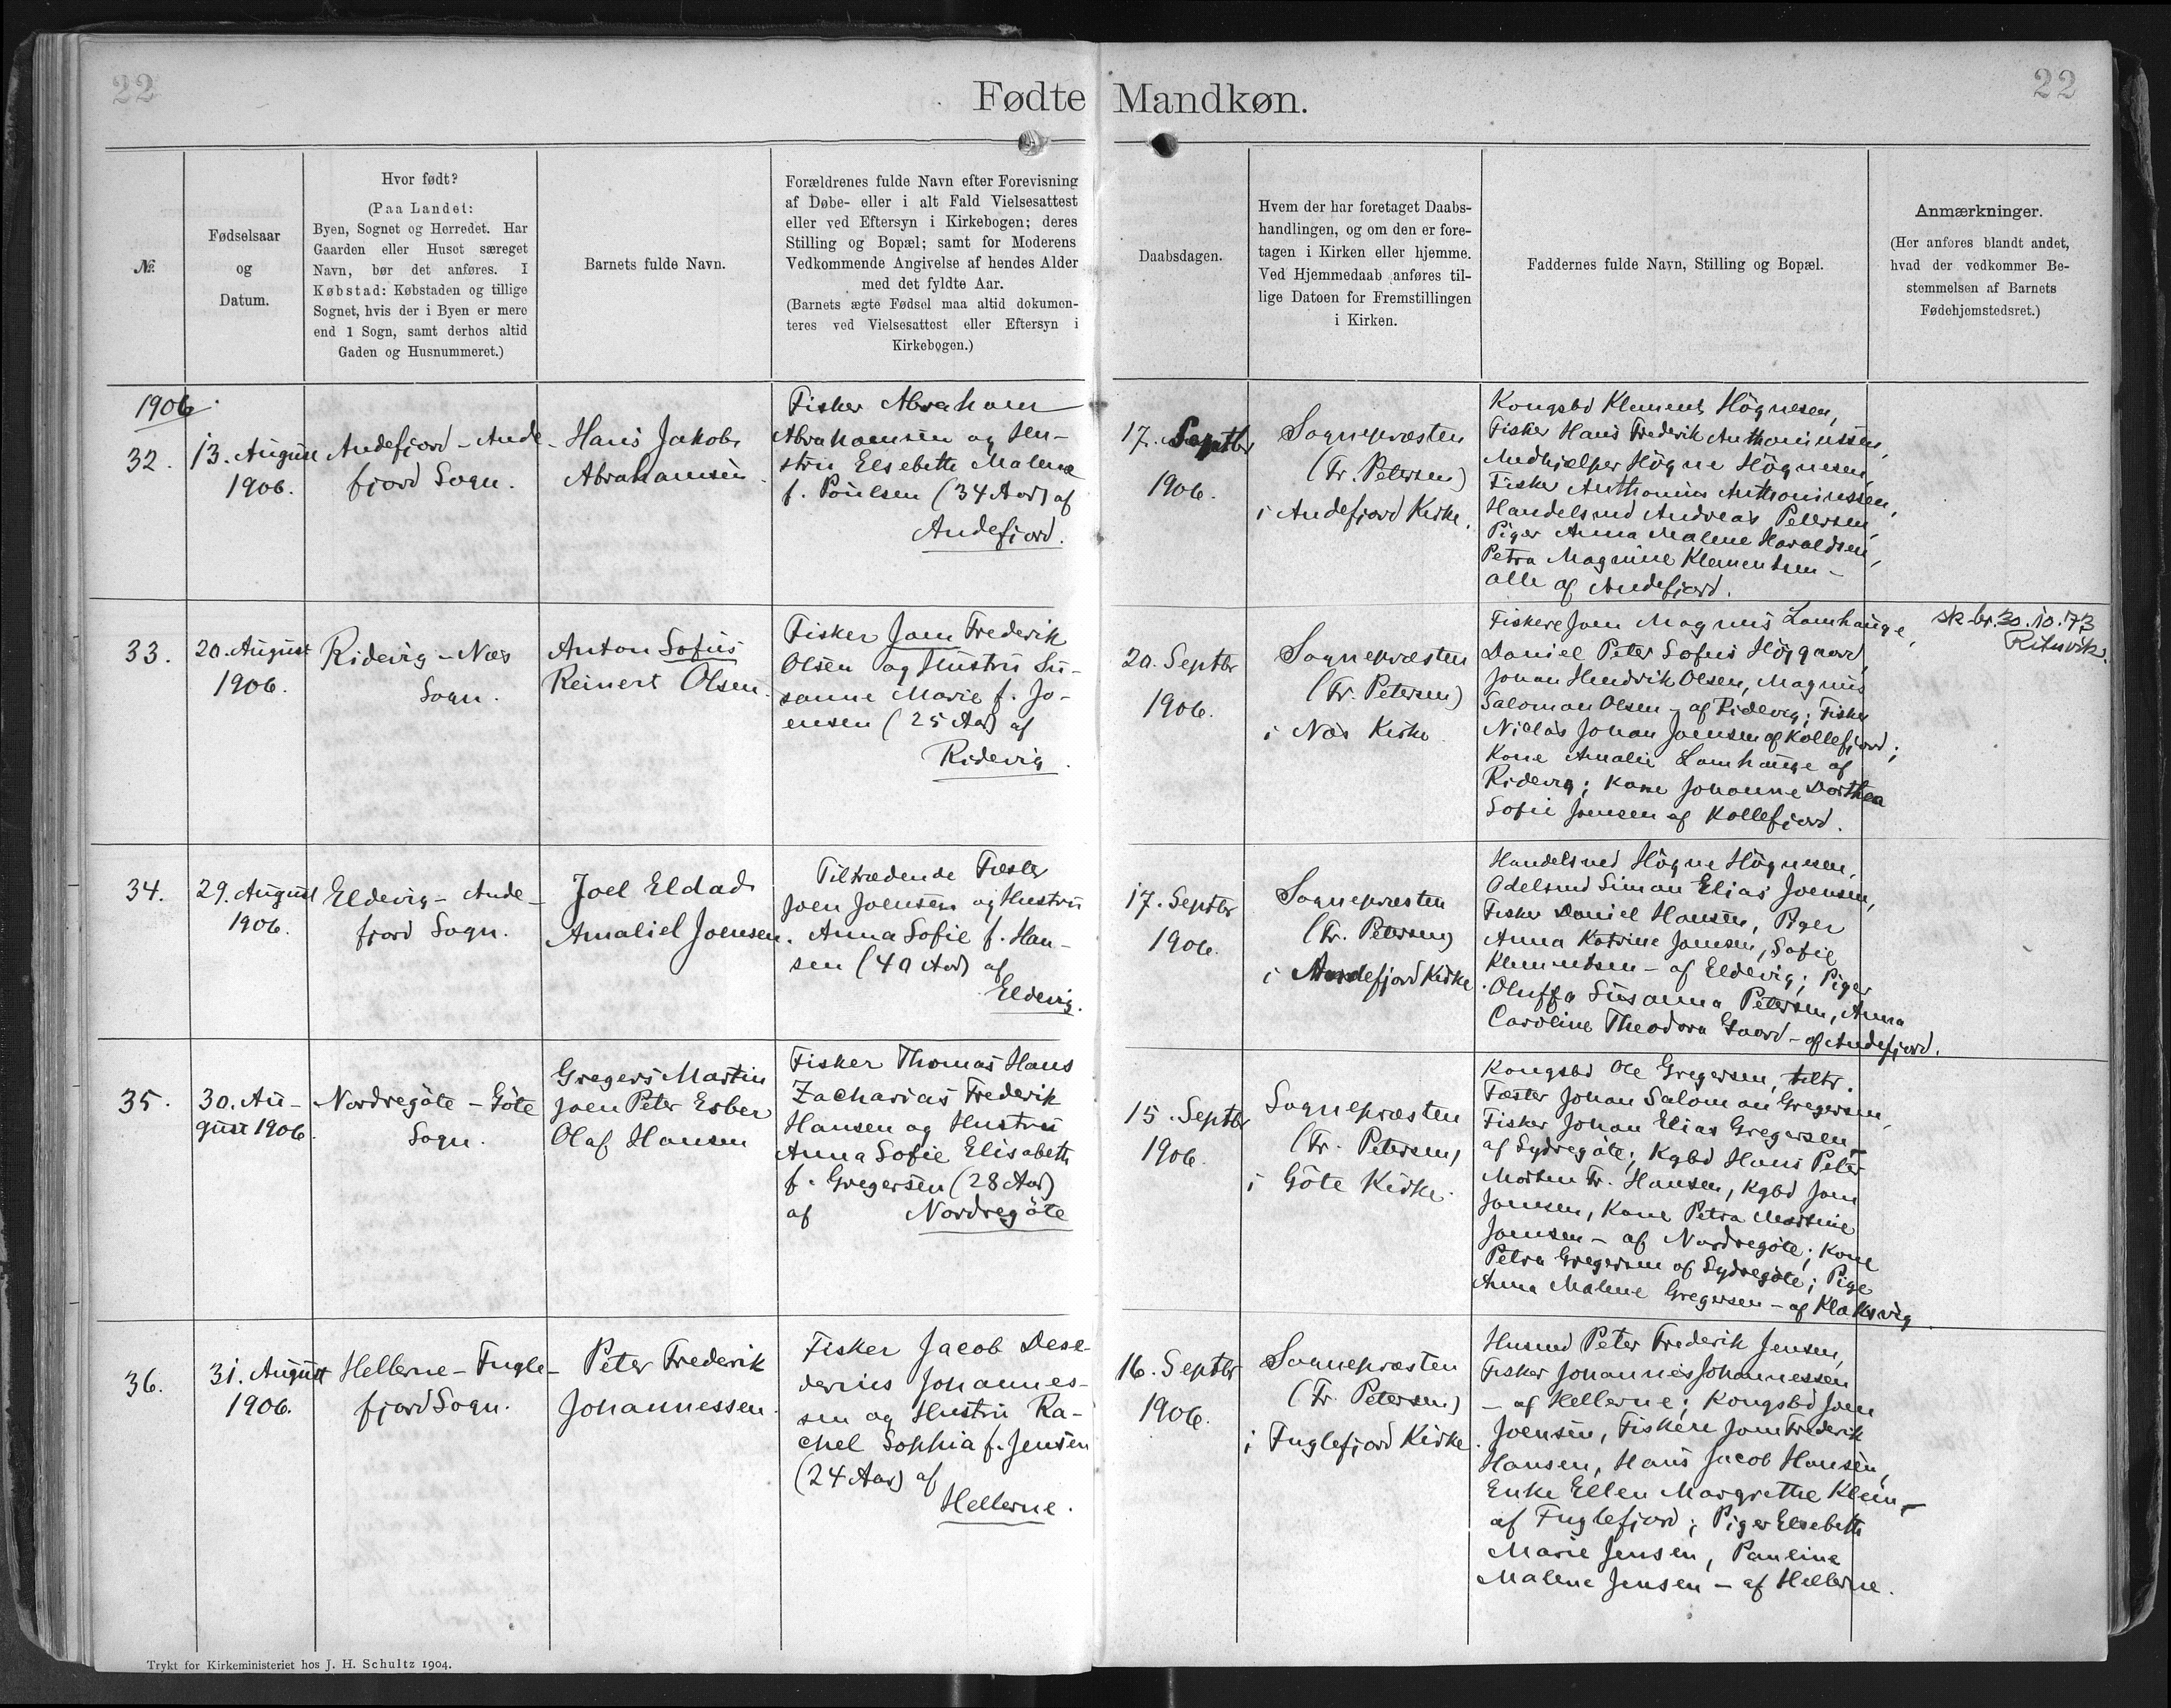 22
22
Fødte Mandkøn.
№.
Fødselsaar
og
Datum.
Hvor født?
(Paa Landet:
Byen, Sognet og Herredet. Har
Gaarden eller Huset særeget
Navn, bør det anføres. I
Købstad: Købstaden og tillige
Sognet, hvis der i Byen er mere
end 1 Sogn, samt derhos altid
Gaden og Husnummeret.)
Barnets fulde Navn.
Forældrenes fulde Navn efter Forevisning
af Døbe- eller i alt Fald Vielsesattest
eller ved Eftersyn i Kirkebogen; deres
Stilling og Bopæl; samt for Moderens
Vedkommende Angivelse af hendes Alder
med det fyldte Aar.
(Barnets ægte Fødsel maa altid dokumen-
teres ved Vielsesattest eller Eftersyn i
Kirkebogen.)
Daabsdagen.
Hvem der har foretaget Daabs-
handlingen, og om den er fore-
tagen i Kirken eller hjemme.
Ved Hjemmedaab anføres til-
lige Datoen for Fremstillingen
i Kirken.
Faddernes fulde Navn, Stilling og Bopæl.
Anmærkninger.
(Her anføres blandt andet,
hvad der vedkommer Be-
stemmelsen af Barnets
Fødehjemstedsret.)
1906.
32.
13. August
1906.
Andefjord - Ande-
fjord Sogn.
Hans Jakob
Abrahamsen.
Fisker Abraham
Abrahamsen og Hu-
stru Elsebeth Malene
f. Poulsen (34 Aar) af
Andefjord.
17. Septbr
1906.
Sognepræsten
(Fr. Petersen)
i Andefjord Kirke.
Kongsbd Klement Högnesen,
Fisker Hans Frederik Anthoniussen,
Medhjælper Högne Högnesen,
Fisker Anthonius Anthoniussen,
Handelsmd Andreas Petersen,
Piger Anna Malene Haraldsen,
Petra Magnine Klementsen -
alle af Andefjord.
33.
20. August
1906.
Ridevig - Næs
Sogn.
Anton Sofus
Reinert Olsen.
Fisker Joen Frederik
Olsen og Hustru Su-
sanne Marie f. Jo-
ensen (25 Aar) af
Ridevig.
20. Septbr
1906.
Sognepræsten
(Fr. Petersen)
i Næs Kirke
Fiskere Joen Magnus Lamhauge,
Daniel Peter Sofus Höjgaard,
Johan Hendrik Olsen, Magnus
Salomon Olsen - af Ridevig; Fisker
Niclas Johan Joensen af Kollefjord;
Kone Amalie Lamhauge af
Ridevig; Kone Johanne Dorthea
Sofie Joensen af Kollefjord.
sk-br. 30.10.73
Rituvík.
34.
29. August
1906.
Eldevig - Ande-
fjord Sogn.
Joel Eldad
Amaliel Joensen.
Tiltrædende Fæster
Joen Joensen og Hustru
Anna Sofie f. Han-
sen (40 Aar) af
Eldevig.
17. Septbr
1906.
Sognepræsten
(Fr. Petersen)
i Andefjord Kirke.
Handelsmd Högne Högnesen,
Odelsmd Simon Elias Joensen,
Fisker Daniel Hansen, Piger
Anna Katrine Joensen, Sofie
Klementsen - af Eldevig; Piger
Oluffa Susanna Petersen, Anna
Caroline Theodora Gaard - af Andefjord.
35.
30. Au-
gust 1906.
Nordregöte - Göte
Sogn.
Gregers Martin
Joen Peter Esber
Olaf Hansen
Fisker Thomas Hans
Zacharias Frederik
Hansen og Hustru
Anna Sofie Elisabeth
f. Gregersen (28 Aar)
af Nordregöte
15. Septbr
1906.
Sognepræsten
(Fr. Petersen)
i Göte Kirke.
Kongsbd Ole Gregersen, tiltr.
Fæster Johan Salomon Gregersen,
Fisker Johan Elias Gregersen -
af Sydregöte; Kgbd Hans Peter
Morten Fr. Hansen, Kgbd Joen
Joensen, Kone Petra Martine
Joensen - af Nordregöte; Kone
Petra Gregersen af Sydregöte; Pige
Anna Malene Gregersen - af Klaksvig.
36.
31. August
1906.
Hellerne - Fugle-
fjord Sogn.
Peter Frederik
Johannessen.
Fisker Jacob Dese-
derius Johannes-
sen og Hustru Ra-
chel Sophia f. Jensen
(24 Aar) af
Hellerne.
16. Septbr
1906.
Sognepræsten
(Fr. Petersen)
i Fuglefjord Kirke.
Husmd Peter Frederik Jensen,
Fisker Johannes Johannessen
- af Hellerne; Kongsbd Joen
Joensen, Fiskere Joen Frederik
Hansen, Hans Jacob Hansen,
Enke Ellen Margrethe Klein -
af Fuglefjord; Piger Elsebeth
Marie Jensen, Pauline
Malene Jensen - af Hellerne.
Trykt for Kirkeministeriet hos J. H. Schultz 1904.